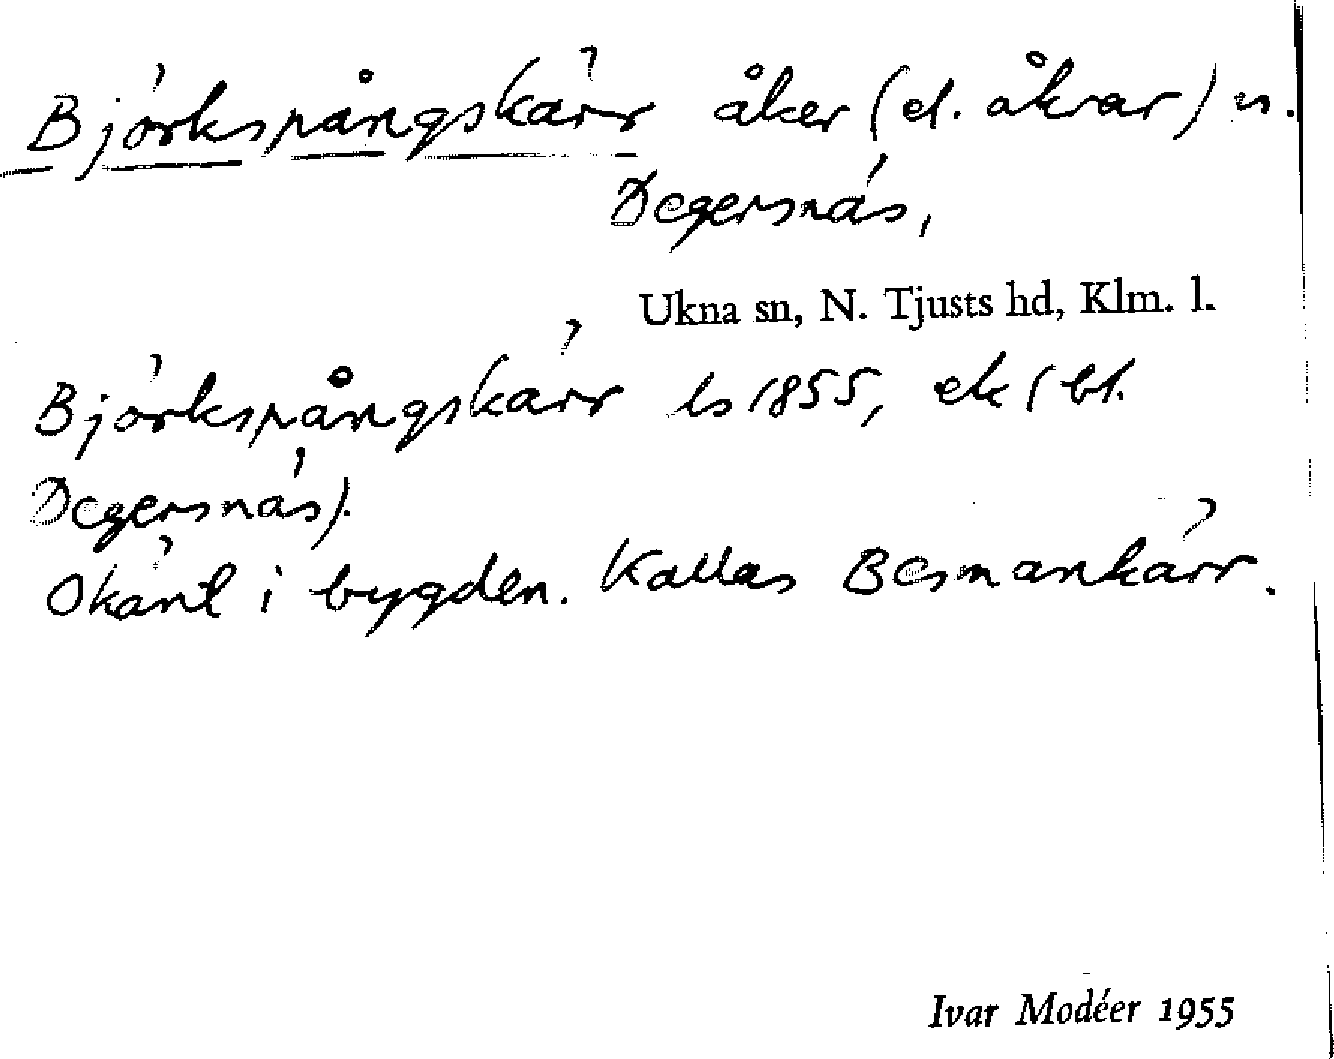 Björkspångskärr åker (el. åkrar) n.
Degersnäs,
Ukna sn, N. Tjusts hd, Klm. l.
Björkspångskärr ls 1855, ek (bl.
Degersnäs).
Okänt i bygden. Kallas Besmankärr.
Ivar Modéer 1955